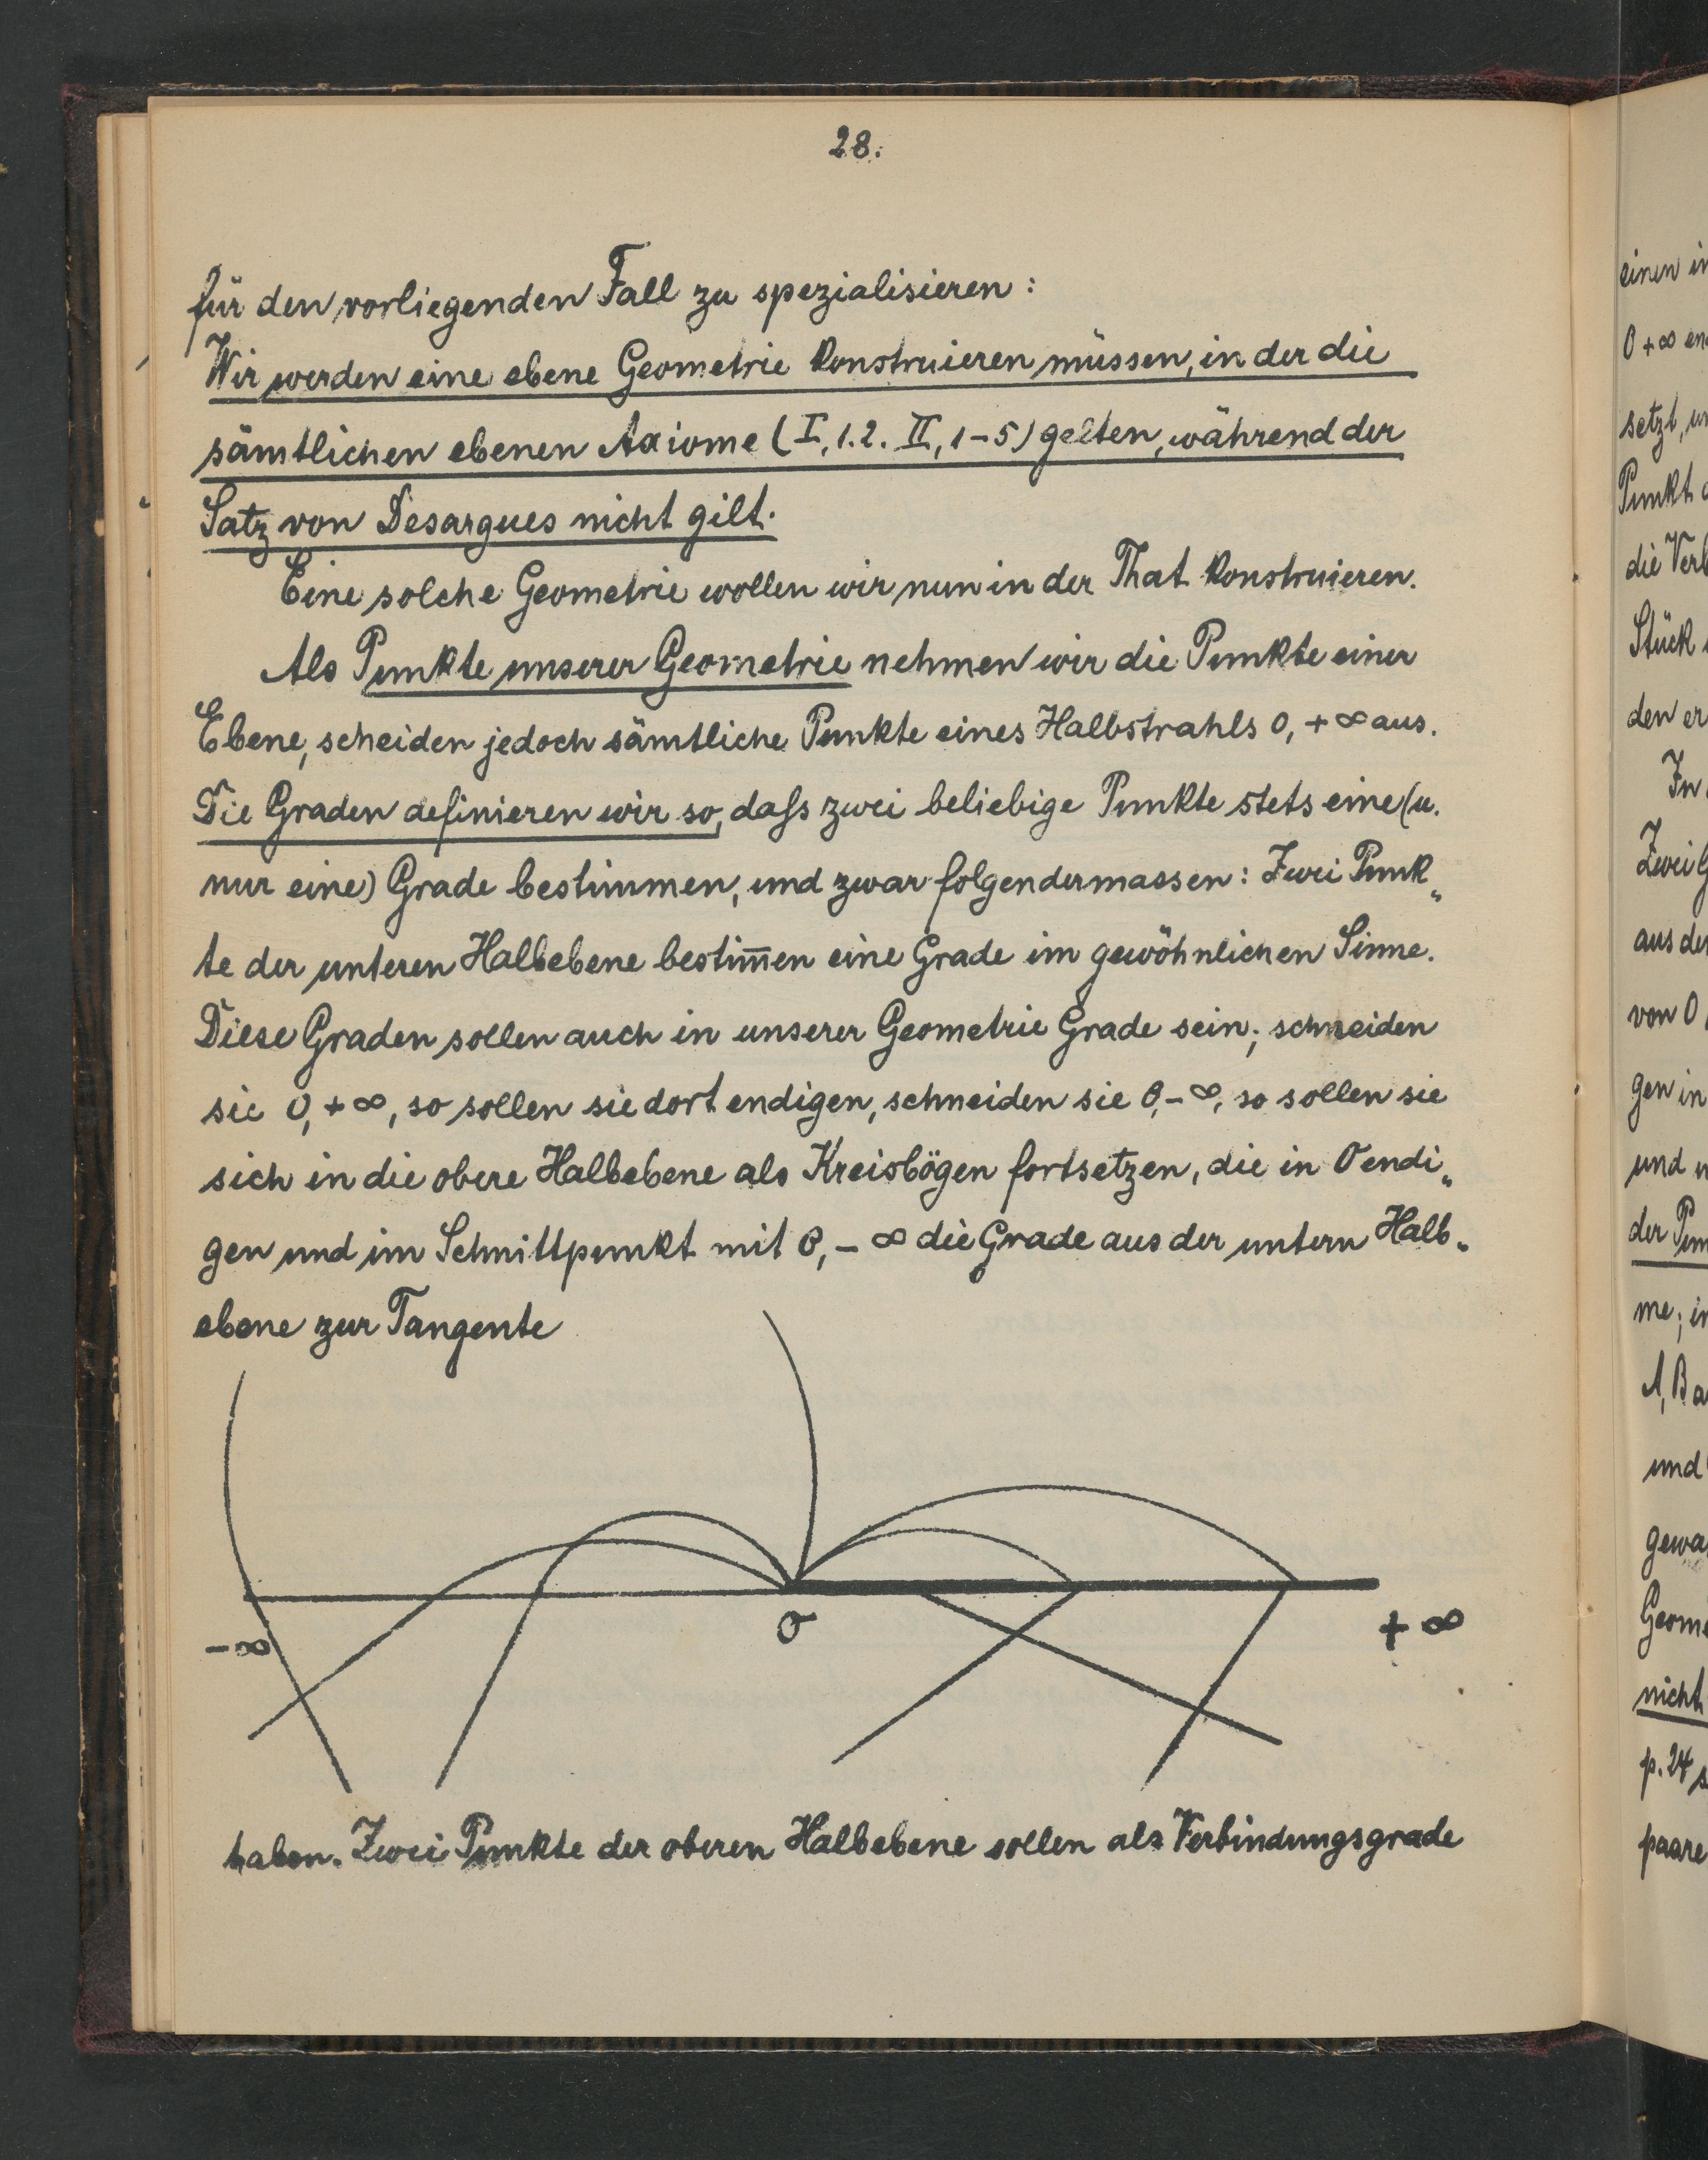 28.
für den vorliegenden Fall zu spezialisieren:
Wir werden eine ebene Geometrie konstruieren müssen, in der die
sämtlichen ebenen Axiome (I, 1.2. II, 1-5) gelten, während der
Satz von Desargues nicht gilt.
Eine solche Geometrie wollen wir nun in der That konstruieren.
Als Punkte unserer Geometrie nehmen wir die Punkte einer
Ebene, scheiden jedoch sämtliche Punkte eines Halbstrahls 0, +∞ aus.
Die Graden definieren wir so, daſs zwei beliebige Punkte stets eine (u.
nur eine) Grade bestimmen, und zwar folgendermassen: Zwei Punk„
te der unteren Halbebene bestim̅en eine Grade im gewöhnlichen Sinne.
Diese Graden sollen auch in unserer Geometrie Grade sein; schneiden
sie 0, +∞, so sollen sie dort endigen, schneiden sie 0,-∞, so sollen sie
sich in die obere Halbebene als Kreisbögen fortsetzen, die in O endi„
gen und im Schnittpunkt mit 0, -∞ die Grade aus der untern Halb„
ebene zur Tangente
-∞ O +∞
haben. Zwei Punkte der oberen Halbebene sollen als Verbindungsgrade
einen
0 +∞
setzt,
Punkt
die
Stück
den
In
Zwei
aus
von 0
gen in
und
der
me;
A, B
und
nicht
p. 24
paare